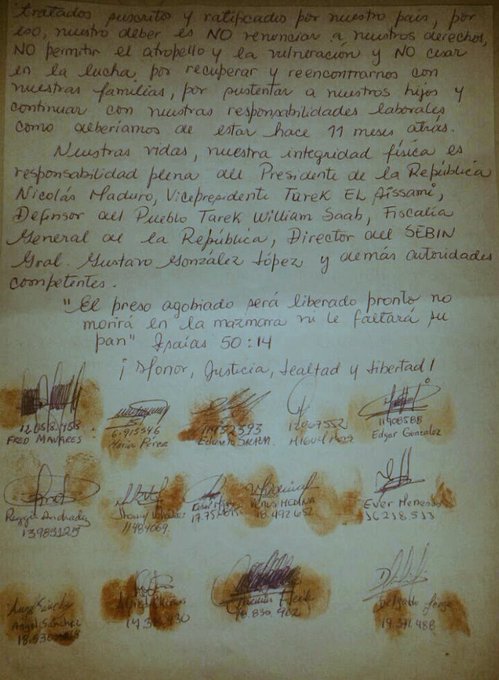 tratados suscritos y ratificados por nuestro país, por
eso, nuestro deber es NO renunciar a nuestros derechos,
NO permitir el atropello y la vulneración y NO cesar
en la lucha por recuperar y reencontrarnos con
nuestras familias, por sustentar a nuestros hijos y
continuar con nuestras responsabilidades laborales
como deberíamos de estar hace 11 meses atrás.
Nuestras vidas, nuestra integridad física es
responsabilidad plena del Presidente de la República
Nicolás Maduro, Vicepresidente Tarek El Aissami,
Defensor del Pueblo Tarek William Saab, Fiscalía
General de la República, Director del SEBIN
Gral. Gustavo González López y demás autoridades
competentes.
"El preso agobiado será liberado pronto no
morirá en la mazmora ni le faltará su
pan" Isaías 50:14
¡Honor, Justicia, Lealtad y Libertad!
FRED MAVARES
María Pérez
11952393
12007552
11908588
Edgar Gonzalez
13985125
Ever
Angel Sánchez
19.391.488